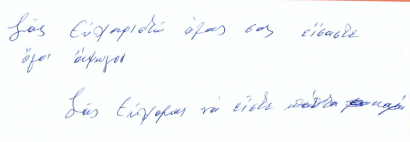 Σας Ευχαριστώ όμως σας είσαστε
όλοι άψογοι
Σας Εύχομαι να είστε πάντα καλά